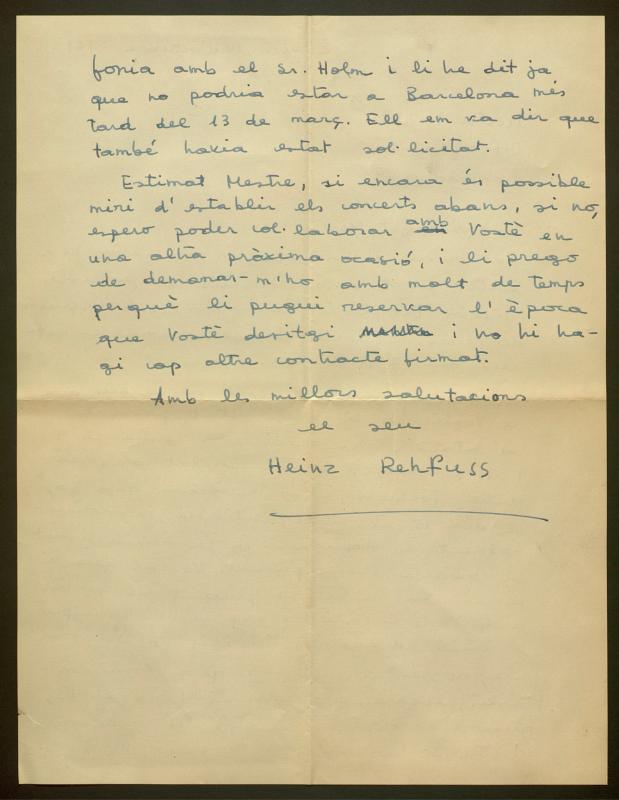 fonia amb el Sr. Holm i li he dit ja
que no podria estar a Barcelona més
tard del 13 de març. Ell em va dir que
també havia estat sol·licitat.
Estimat Mestre, si encara és possible
miri d'establir els concerts abans, si no,
espero poder col·laborar amb Vostè en
una altra pròxima ocasió, i li prego
de demanar-m'ho amb molt de temps
perquè li pugui reservar l'època
que Vostè desitgi i no hi ha-
gi cap altre contracte firmat.
Amb les millors salutacions
el seu
Heinz Rehfuss